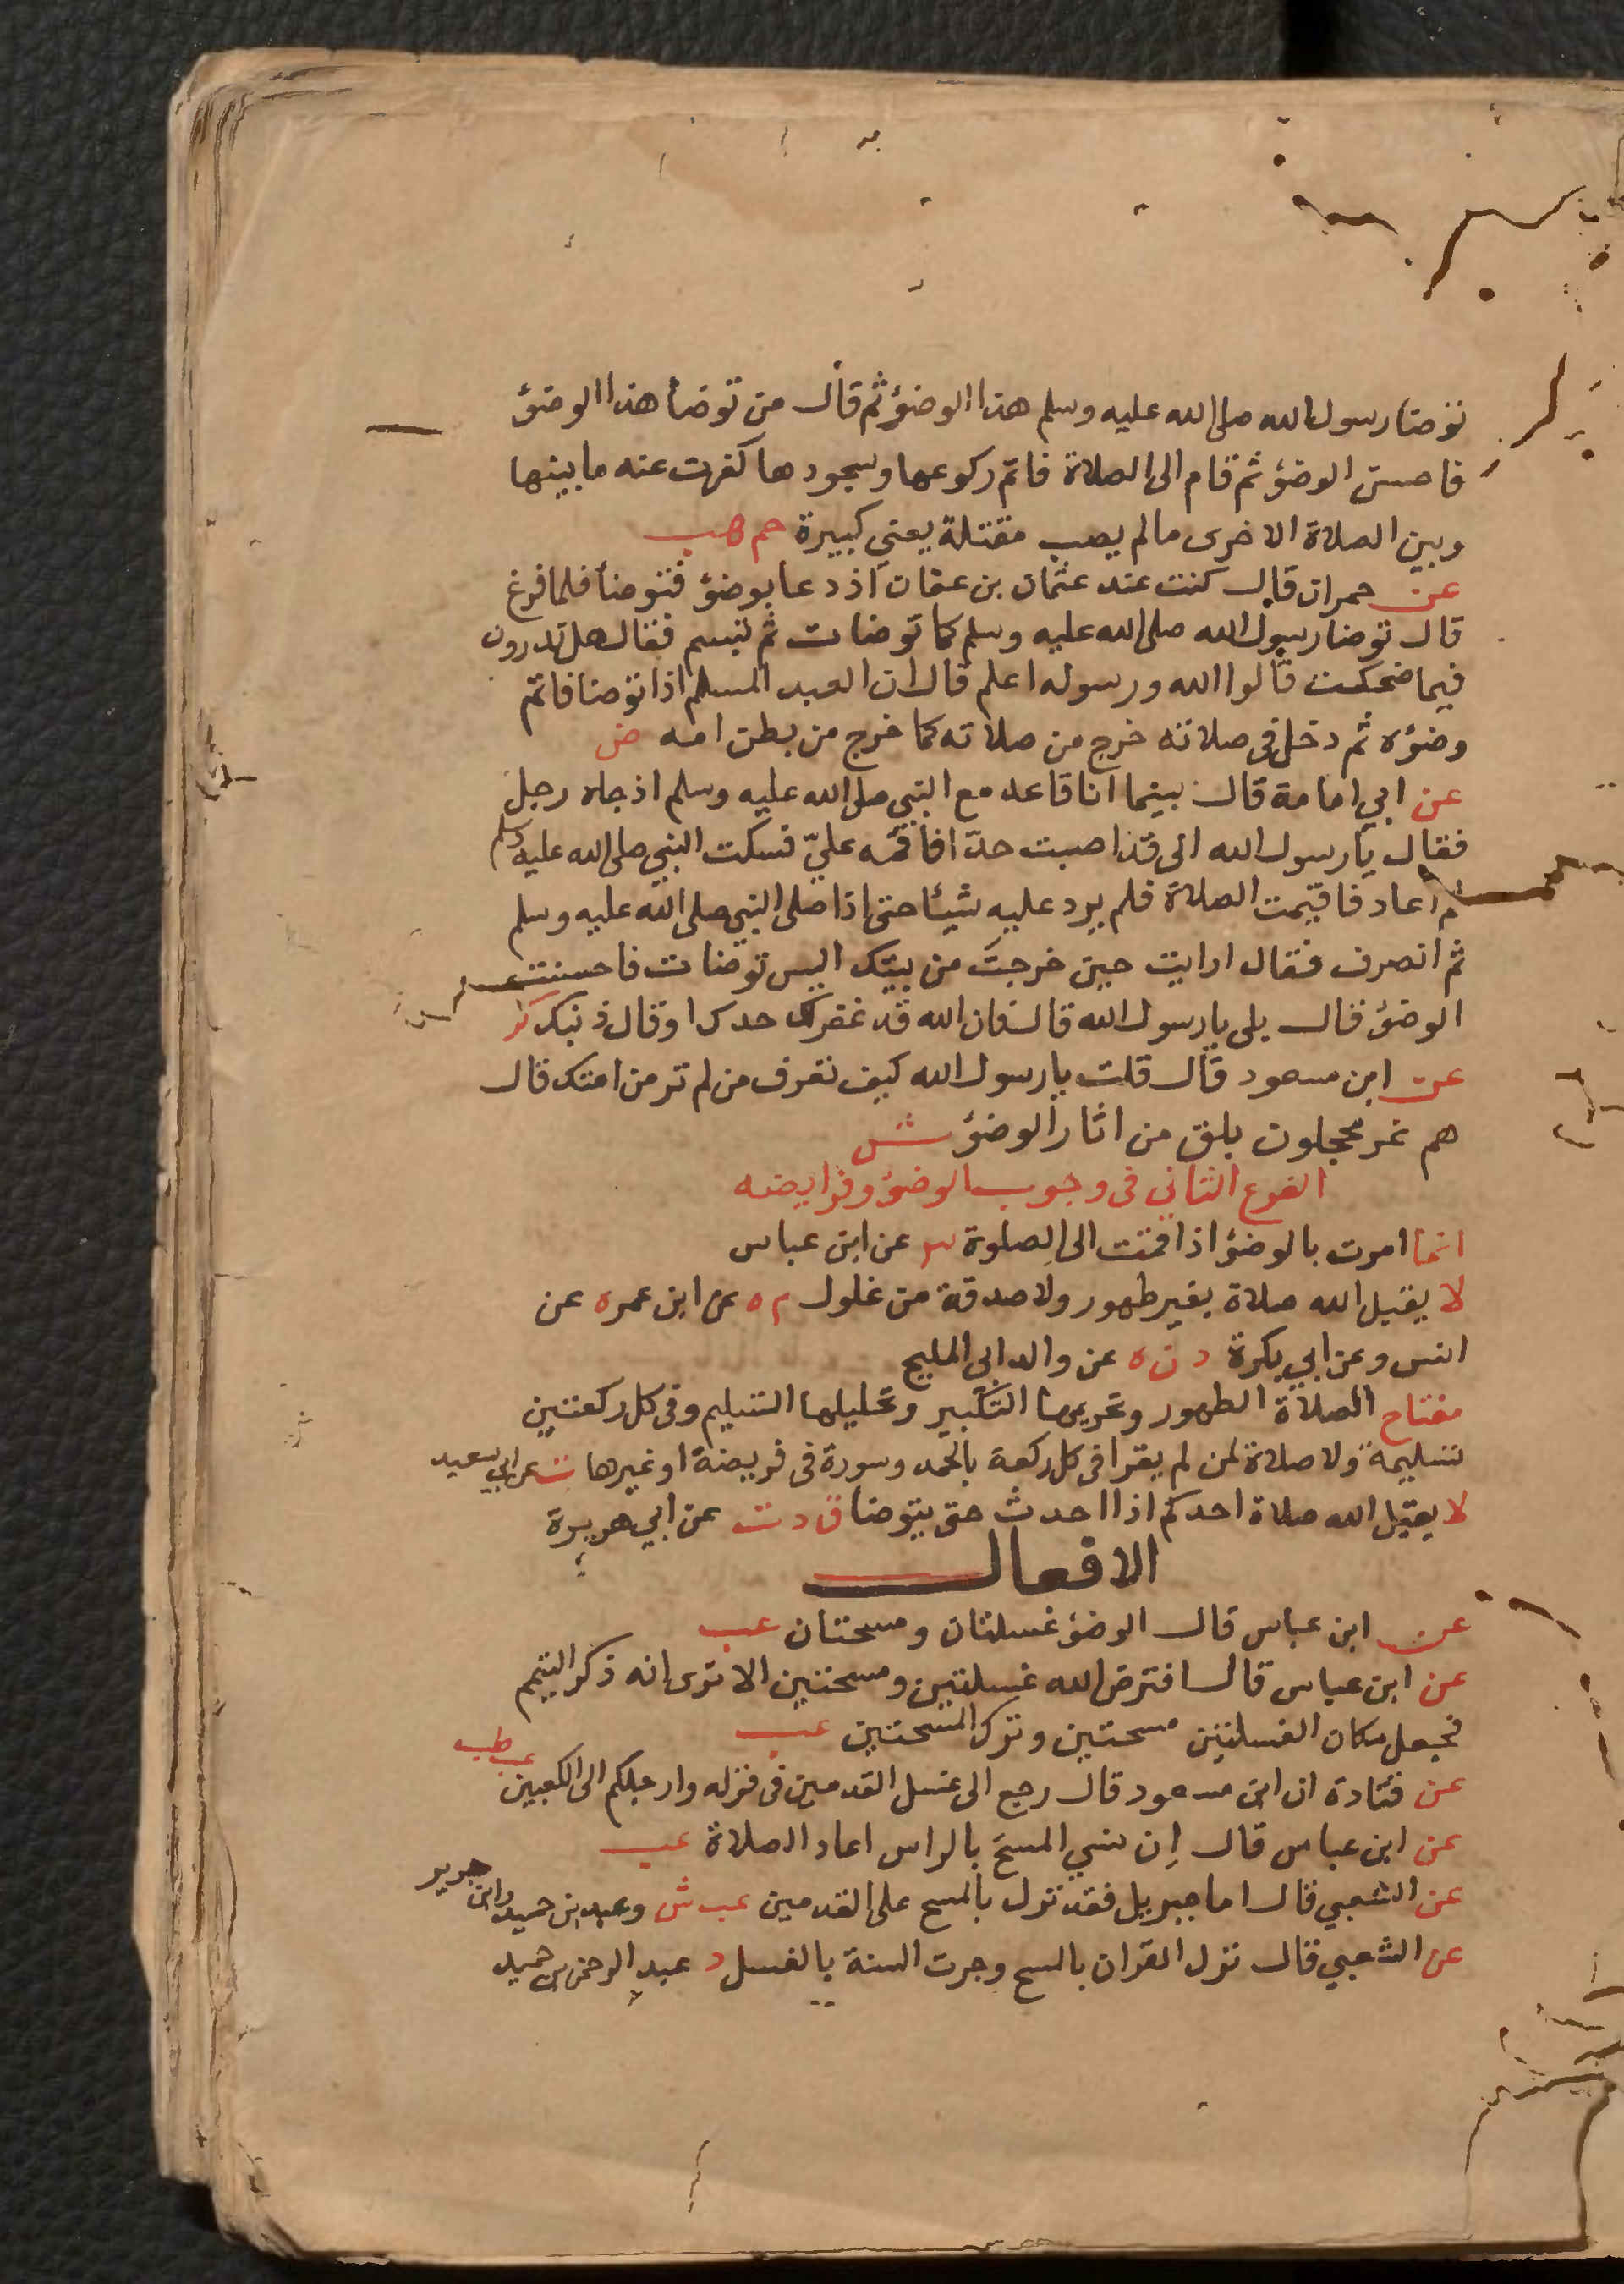 توضا رسول الله صلى الله عليه وسلم هذا الوضؤ ثم قال من توضا هذا الوضؤ
فاحسن الوضؤ ثم قام الى الصلاة فاتم ركوعها وسجودها كفرت عنه ما بينها
وبين الصلاة الاخرى ما لم يصب مقتلة يعني كبيرة حم هب
عن حمران قال كنت عند عثمان بن عفان اذ دعا بوضؤ فتوضأ فلما فرغ
قال توضا رسول الله صلى الله عليه وسلم كما توضات ثم تبسم فقال هل تدرون
فيما ضحكت قالوا الله ورسوله اعلم قال ان العبد المسلم اذا توضا فاتم
وضؤه ثم دخل في صلاته خرج من صلاته كما خرج من بطن امه ض
عن ابي امامة قال بينما انا قاعد مع النبي صلى الله عليه وسلم اذ جاه رجل
فقال يا رسول الله انى قد اصبت حدّا فاقمه عليّ فسكت النبي صلى الله عليه وسلم
ثم اعاد فاقيمت الصلاة فلم يرد عليه شيئا حتى اذا صلى النبي صلى الله عليه وسلم
ثم انصرف فقال ارايت حين خرجتَ من بيتك اليس توضات فاحسنت
الوضؤ قال بلى يا رسول الله قال فان الله قد غفر لك حدك او قال ذنبك كر
عن ابن مسعود قال قلت يا رسول الله كيف تعرف من لم تر من امتك قال
هم غر محجلون بلق من اثار الوضؤ ش
الفرع الثاني في وجوب الوضؤ وفرايضه
انما امرت بالوضؤ اذا قمت الى الصلوة عن ابن عباس
لا يقبل الله صلاة بغير طهور ولا صدقة من غلول م ه عن ابن عمر ه عن
انس وعن ابي بكرة د ن ه عن والد ابي المليح
مفتاح الصلاة الطهور وتحريمها التكبير وتحليلها التسليم وفى كل ركعتين
تسليمة ولا صلاة لمن لم يقرا في كل ركعة بالحمد وسورة في فريضة او غيرها ت عن ابي سعيد
لا يقبل الله صلاة احدكم اذا احدث حتى يتوضا ق د ت عن ابي هريرة
الافعال
عن ابن عباس قال الوضؤ غسلتان ومسحتان عب
عن ابن عباس قال افترض الله غسلتين ومسحتين الا ترى انه ذكر التيمم
فجعل مكان الغسلتين مسحتين وترك المسحتين عب
عن قتادة ان ابن مسعود قال رجع الى غسل القدمين في قزله وارجلكم الى الكعبين عب طب
عن ابن عباس قال إن نسي المسحَ بالراس اعاد الصلاة عب
عن الشعبي قال اما جبريل فقد نزل بالمسح على القدمين عب ش وعبد بن حميد وابن جرير
عن الشعبي قال نزل القران بالمسح وجرت السنة بالغسل د عبد الرحمن بن حميد